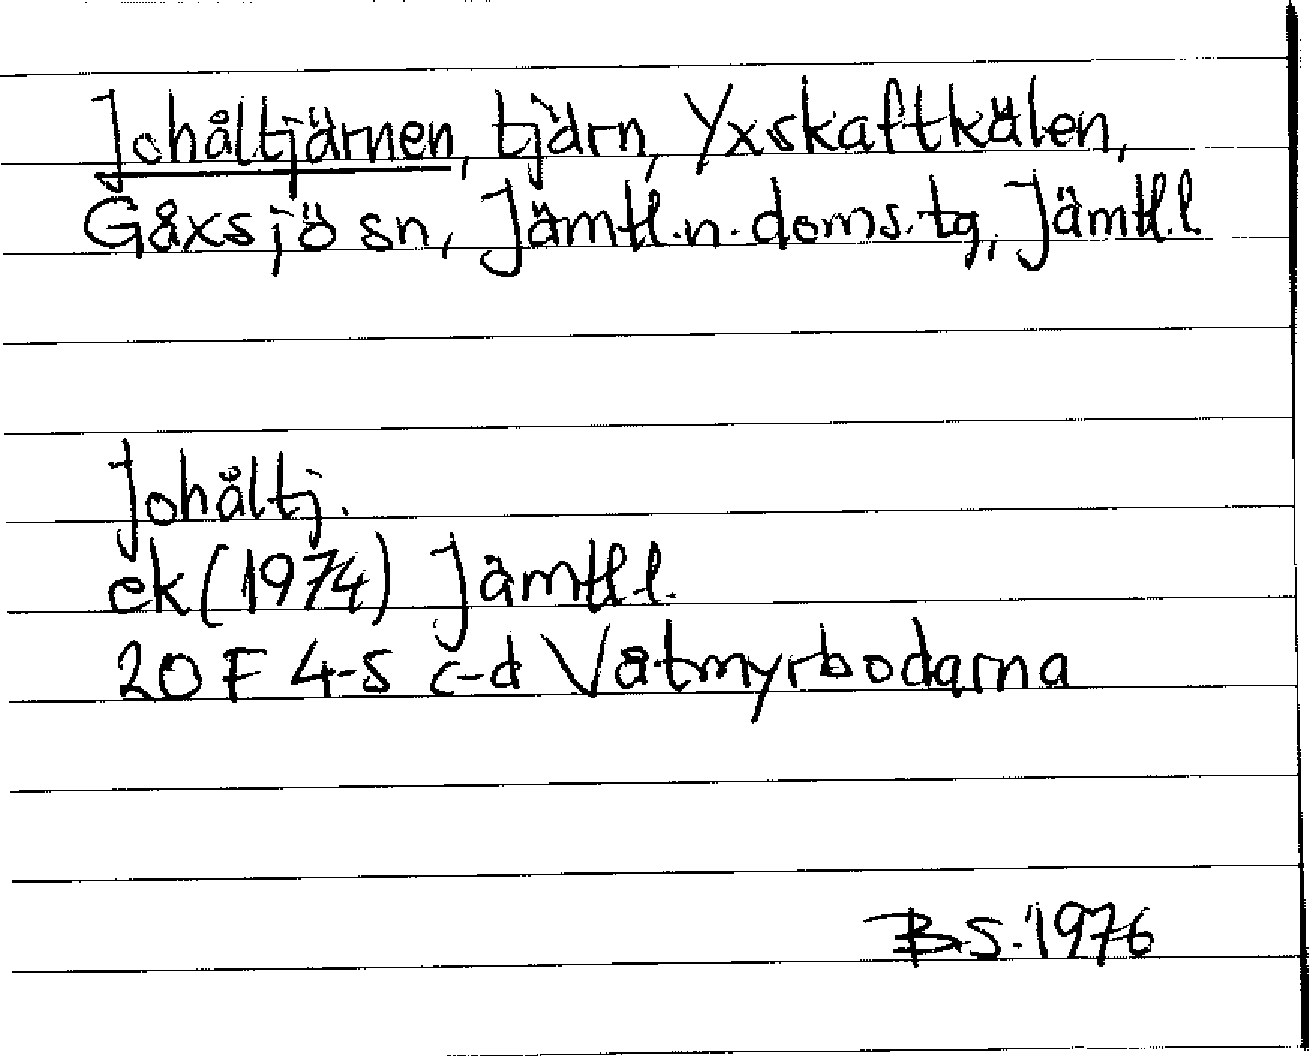 Johåltjärnen, tjärn, Yxskaftkälen,
Gåxsjö sn, Jämtl.n.doms.tg, Jämtl.l.
Johåltj.
ek (1974) Jämtl.l.
20 F 4-5 c-d Våtmyrbodarna
B.S. 1976